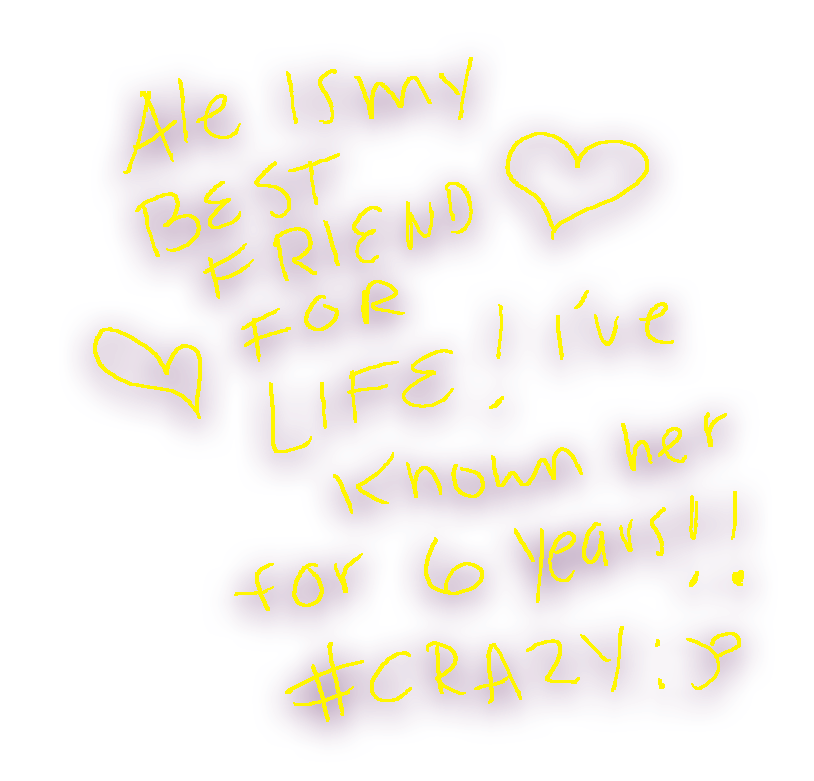 Ale is my
BEST
FRIEND
FOR
LIFE! I've
known her
for 6 years!!
#CRAZY:P